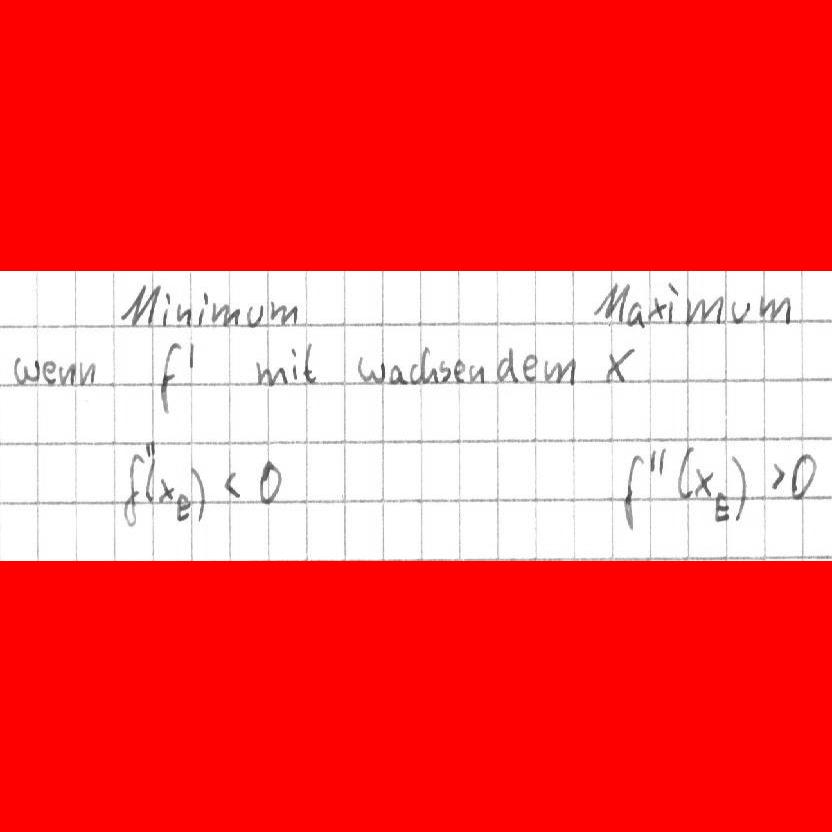 Minimum Maximum
wenn f' mit wachsendem x
f''(x_E) < 0 f''(x_E) > 0